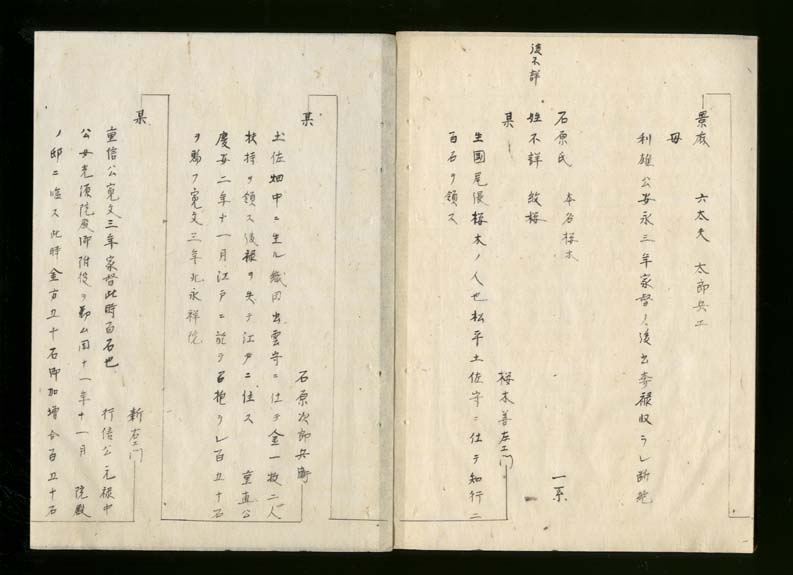 景広 六太夫 太郎兵エ
母
利雄公安永三年家督ノ後出奔禄収ラレ断絶
後不詳
石原氏 本名桜木
姓不詳 紋桜 一系
某 桜木善左エ門
生國尾張桜木ノ人也松平土佐守ニ仕テ知行二
百石ヲ領ス
某 石原次郎兵衛
土佐畑中ニ生ル織田出雲守ニ仕テ金一枚二人
扶持ヲ領ス後禄ヲ失テ江戸ニ住ス 重直公
慶安二年十一月江戸ニ於テ召抱ラレ百五十石
ヲ賜フ寛文三年死永祥院
某 新右エ門
重信公寛文三年家督此時百石也 行信公元禄中
公女光源院殿御附役ヲ勤ム同十一年十一月 院殿
ノ邸ニ臨ス此時金方五十石御加増合百五十石